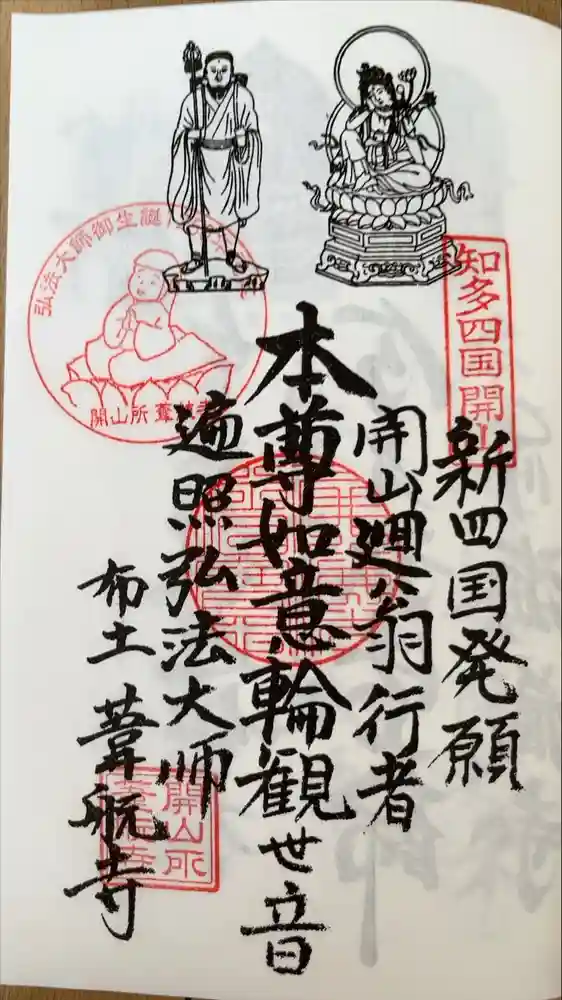 新四国発願
開山廻翁行者
本尊如意輪観世音
遍照弘法大师
布土 葦航寺
知多四国開山
弘法大師御生誕
開山所 葦航寺
開山所
葦航寺